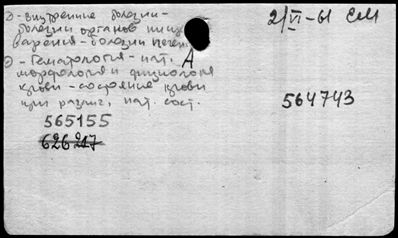 2) - внутренние болезни -
болезни органов пище
варения - болезни печени
2) - гематология - пат.
морфология и физиология
крови - состояние крови
при разл., пат. сост.
А
2/VI-61
564743
565155
626217